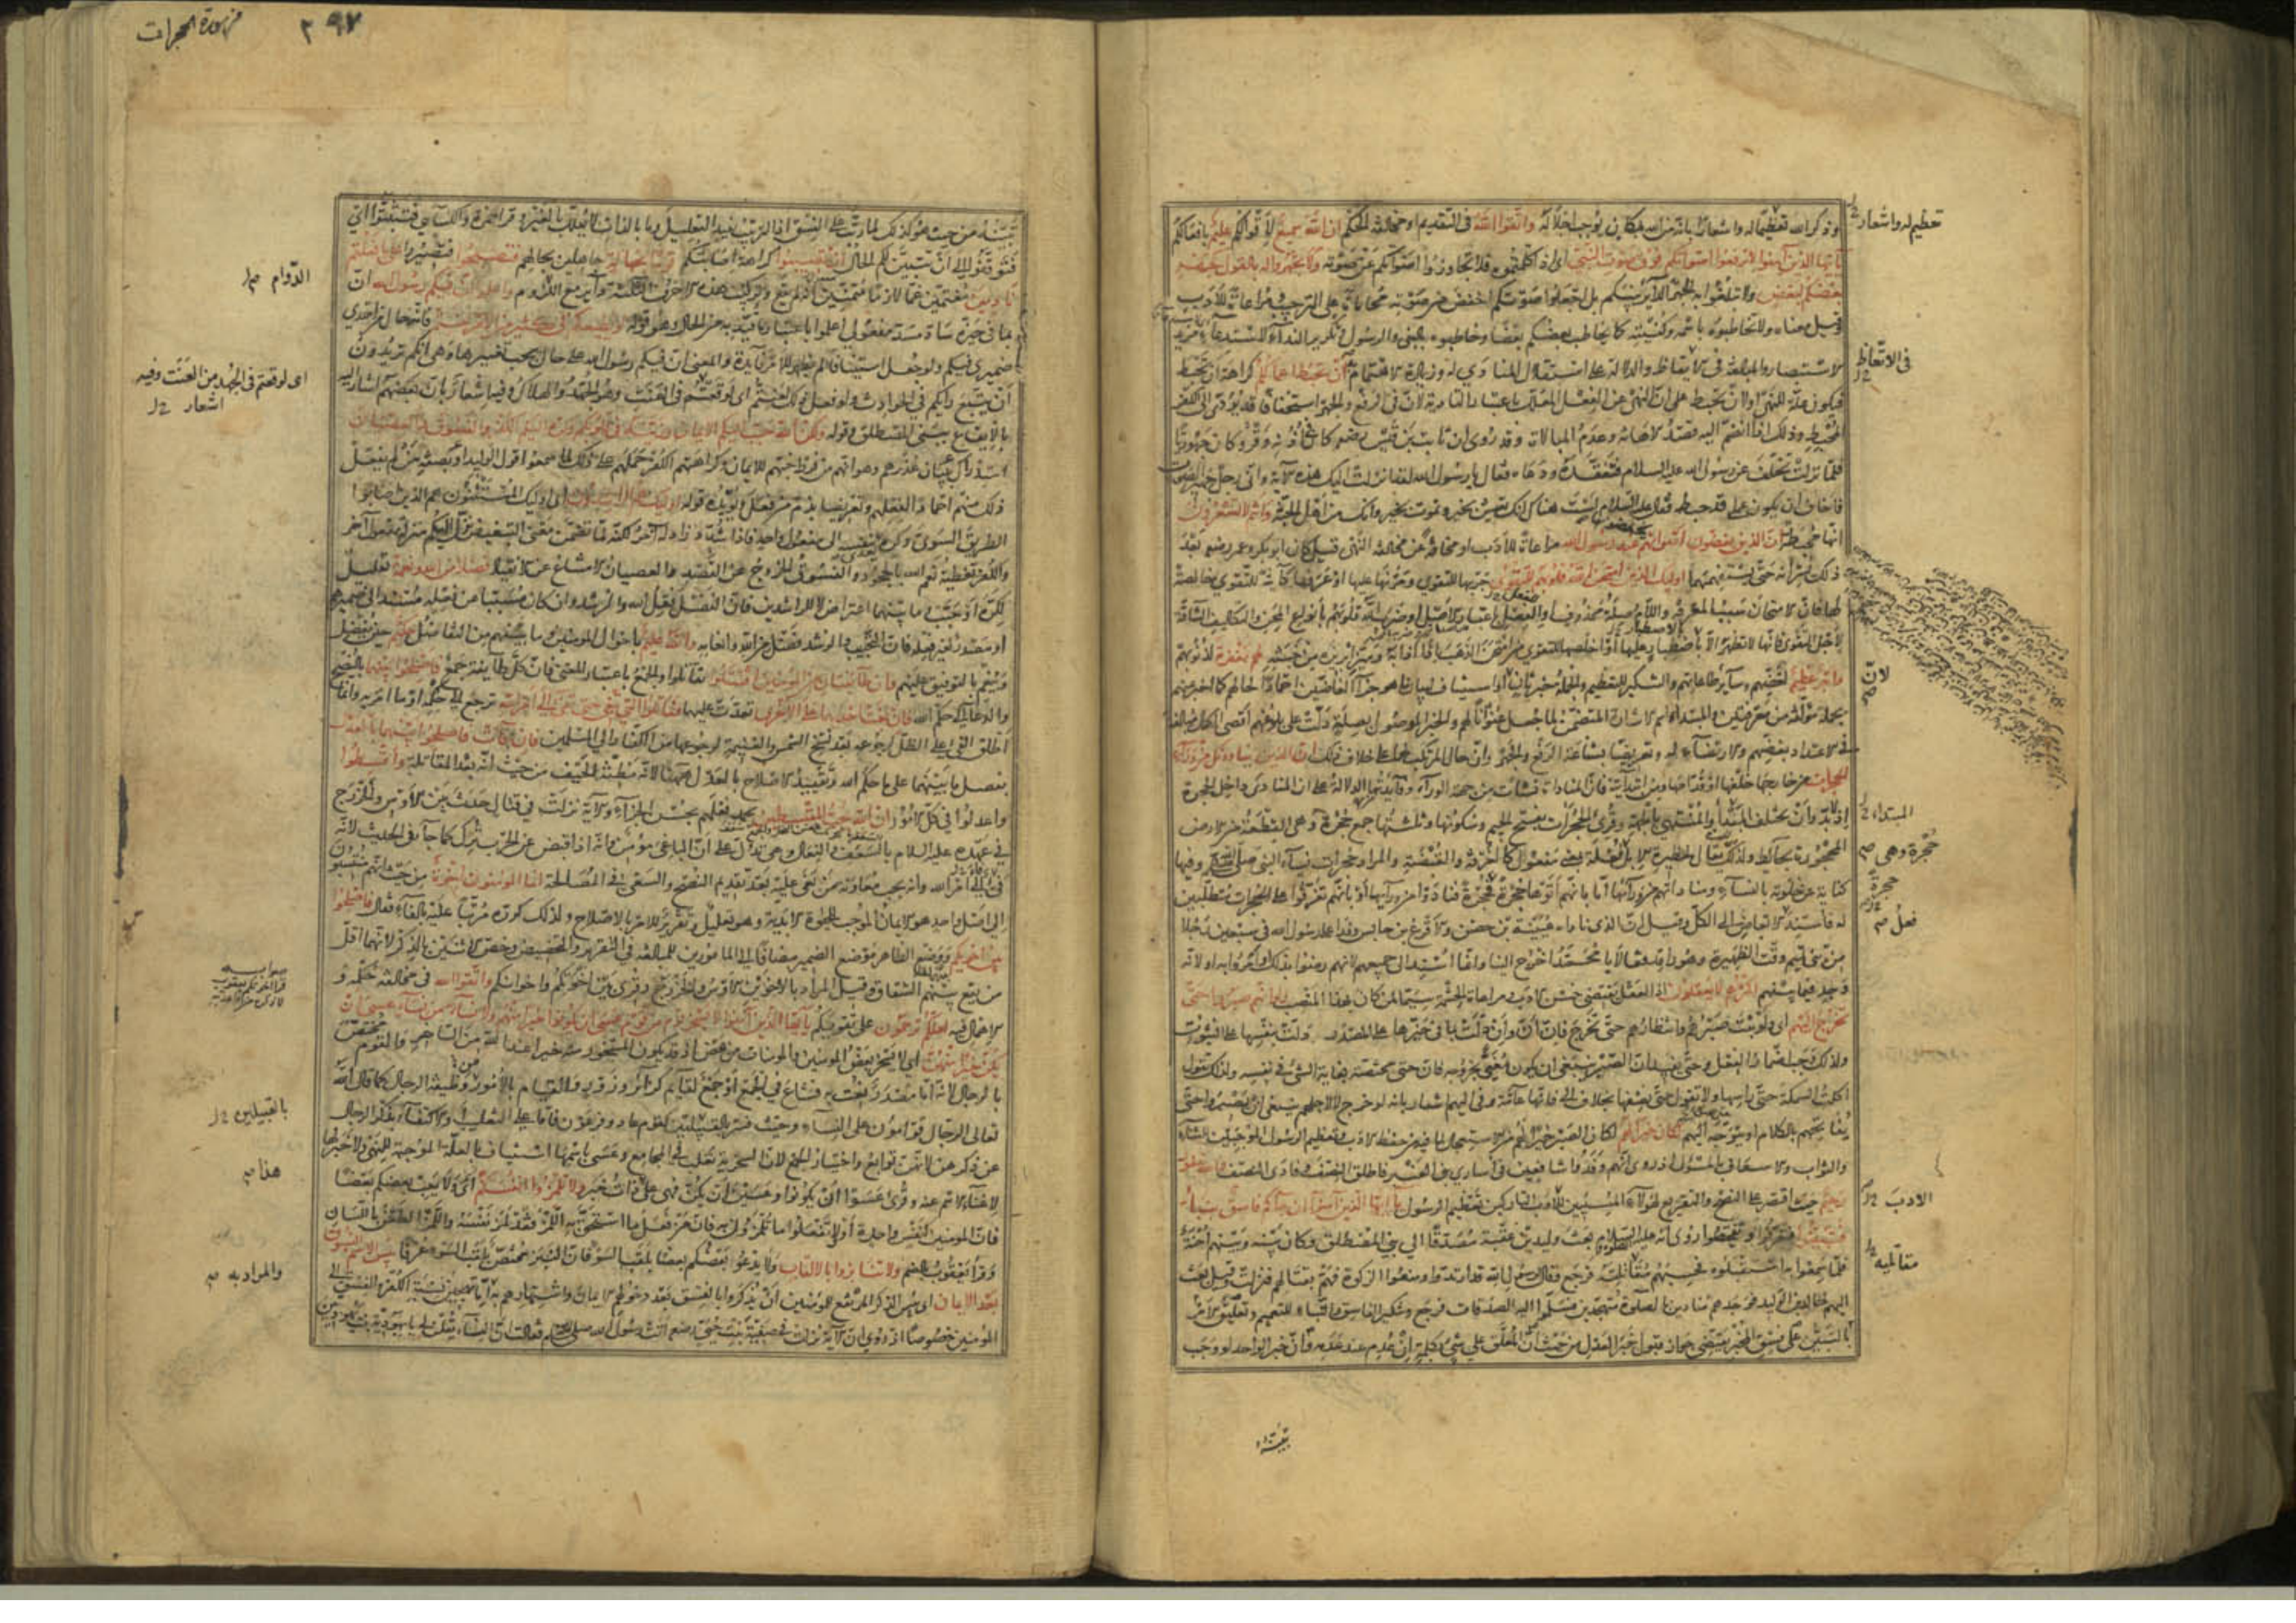 وذكر الله تعظيما له واشعارا بانه من الله بمكان يوجب اجلاله واتقوا الله فى التقديم او مخالفة الحكم ان الله سميع لاقوالكم عليم بافعالكم
يا ايها الذين آمنوا لا ترفعوا اصواتكم فوق صوت النبي اى اذا كلمتموه فلا تجاوزوا اصواتكم عن صوته ولا تجهروا له بالقول كجهر
بعضكم لبعض ولا تبلغوا به الجهر الدائر بينكم بل اجعلوا صوتكم اخفض من صوته محاماة على الترحيب ومراعاة للأدب
وقيل معناه ولا تخاطبوه باسمه وكنيته كما يخاطب بعضكم بعضا وخاطبوه بالنبى والرسول وتكرير النداء لاستدعاء مزيد
الاستبصار والمبالغة فى الايقاظ والدلالة على استقلال المنادى له وزيادة الاهتمام به أن تحبط اعمالكم كراهة ان تحبط
فيكون علة للنهى او لان تحبط على ان النهى عن الفعل المعلل باعتبار التأدية لان فى الرفع والجهر استخفافا قد يؤدى الى الكفر
المحبط وذلك اذا انضم اليه قصد الاهانة وعدم المبالات وقد روى ان ثابت بن قيس رضي الله عنه كان فى أذنه وقر وكان جهوريا
فلما نزلت تخلف عن رسول الله عليه السلام فتفقده ودعاه فقال يا رسول الله لقد انزلت اليك هذه الآية وانى رجل جهير الصوت
فاخاف ان يكون عملى قد حبط فقال عليه السلام لست هناك انك تعيش بخير وتموت بخير وانك من أهل الجنة وانتم لا تشعرون
انها محبطة ان الذين يغضون اصواتهم عند رسول الله مراعاة للأدب او مخافة عن مخالفة النهى قيل كان ابو بكر وعمر رضي بعد
ذلك يسرانه حتى يستفهمهما اوليك الذين امتحن الله قلوبهم للتقوى جربها للتقوى ومرنها عليها او عرفها كائنة للتقوى خالصة
لها فان الامتحان سبب المعرفة واللام صلة محذوف او الفعل باعتبار الاصل او ضرب الله قلوبهم بأنواع المحن والتكاليف الشاقة
لأجل التقوى فانها لا تظهر الا بالاصطبار عليها او اخلصها للتقوى من امتحن الذهب اذا اذابه وميز ابريزه من خبثه لهم مغفرة لذنوبهم
واجر عظيم لغضهم وسائر طاعاتهم والتنكير للتعظيم والجملة خبر ثان لان او استيناف لبيان ما هو جزاء الغاضين احمادا لحالهم كما اخبر عنهم
بجملة مؤلفة من معرفتين والمبتدأ اسم الاشارة المتضمن لما جعل عنوانا لهم والخبر الموصول بصلة دلت على بلوغهم اقصى الكمال مبالغة
فى الاعتداد بغضهم والارتضاء له وتعريضا بشناعة الرفع والجهر وان حال المرتكب لهما على خلاف ذلك ان الذين ينادونك من وراء
الحجرات من خارجها خلفها او قدامها ومن ابتدائية فان المناداة نشأت من جهة الوراء وفائدتها الدلالة على ان المنادى داخل الحجرة
اذ لا بد وان يختلف المبتدأ والمنتهى بالجهة وقرئ الحجرات بفتح الجيم وسكونها وثلثتها جمع حجرة وهى القطعة من الارض
المحجورة بحائط ولذلك يقال لحظيرة الابل فعلة بمعنى مفعول كالغرفة والقبضة والمراد حجرات نساء النبى صلى الله عليه وسلم وفيها
كناية عن خلوته بالنساء ومناداتهم من ورائها اما بانهم أتوها حجرة حجرة فنادوه من ورائها او بانهم تفرقوا على الحجرات متطلبين
له فاسند الابعاض الى الكل وقيل ان الذى ناداه عيينة بن حصن والاقرع بن حابس وفدا على رسول الله فى سبعين رجلا
من بنى تميم وقت الظهيرة وهو راقد فقالا يا محمد اخرج الينا وانما اسند الى جميعهم لانهم رضوا بذلك او امروا به او لانه
وجد فيما بينهم اكثرهم لا يعقلون اذ العقل يقتضى حسن الادب ومراعاة الحشمة سيما لمن كان بهذا المنصب ولو انهم صبروا حتى
تخرج اليهم اى ولو ثبت صبرهم وانتظارهم حتى تخرج فان أن وان دلت بما فى حيزها على المصدر دلت بنفسها على الثبوت
ولذلك وجب اضمار الفعل وحتى تفيد ان الصبر ينبغى ان يكون مغيا بخروجه فان حتى مختصة بغاية الشئ فى نفسه ولذلك تقول
اكلت السمكة حتى رأسها ولا تقول حتى نصفها بخلاف الى فانها عامة وفى اليهم اشعار بانه لو خرج لا لاجلهم ينبغى ان يصبروا حتى
يفاتحهم بالكلام او يتوجه اليهم لكان خيرا لهم لكان الصبر خيرا لهم من الاستعجال لما فيه من حفظ الادب وتعظيم الرسول الموجبين للثناء
والثواب والاسعاف بالمسئول اذ روى انهم وفدوا شافعين فى أسارى بنى العنبر فاطلق النصف وفادى النصف والله غفور
رحيم حيث اقتصر على النصح والتقريع لهؤلاء المسيئين للأدب التاركين تعظيم الرسول يا ايها الذين آمنوا ان جاءكم فاسق بنبأ
فتبينوا فتعرفوا وتفحصوا روى انه عليه السلام بعث وليد بن عقبة مصدقا الى بنى المصطلق وكان بينه وبينهم احنة
فلما سمعوا به استقبلوه فحسبهم مقاتليه فرجع وقال لرسول الله قد ارتدوا ومنعوا الزكوة فهم بقتالهم فنزلت وقيل بعث
اليهم خالد بن الوليد فوجدهم منادين بالصلوة متهجدين فسلموا اليه الصدقات فرجع وتنكير الفاسق والنبأ للتعميم وتعليق الامر
بالتبين على فسق المخبر يقتضى جواز قبول خبر العدل من حيث ان المعلق على شئ بكلمة إن عدم عند عدمه وان خبر الواحد لو وجب
تعظيم له واشعار
فى الاتعاظ
لان
المبتداء
حجرة وهى
حجرة
فعل
الادب
مقاتليه
تبينه
من سورة الحجرات
٢٩٧
تبينه من حيث هو كذلك لما رتب على الفسق اذ الترتيب يفيد التعليل وما بالذات لا يعلل بالغير وقرأ حمزة والكسائى فتثبتوا اى
فتوقفوا الى ان يتبين لكم الحال أن تصيبوا كراهة اصابتكم قوما بجهالة جاهلين بحالهم فتصبحوا فتصيروا على ما فعلتم
نادمين مغتمين غما لازما متمنين انه لم يقع وتركيب هذه الاحرف الثلثة دائر مع الدوام واعلموا ان فيكم رسول الله ان
بما فى حيزه ساد مسد مفعولى اعلموا باعتبار ما قيد به من الحال وهو قوله لو يطيعكم فى كثير من الامر لعنتم فانه حال من احدى
ضميرى فيكم ولو جعل استينافا لم يظهر للأمر فائدة والمعنى ان فيكم رسول الله على حال يجب تغييرها وهى انكم تريدون
أن يتبع رأيكم فى الحوادث ولو فعل ذلك لعنتم أى لوقعتم فى العنت وهو الجهد والهلاك وفيه اشعار بان بعضهم اشار اليه
بالايقاع ببنى المصطلق وقوله ولكن الله حبب اليكم الايمان وزينه فى قلوبكم وكره اليكم الكفر والفسوق والعصيان
استدراك ببيان عذرهم وهو انهم من فرط حبهم للايمان وكراهتهم الكفر حملهم على ذلك لما سمعوا قول الوليد او بصفة من لم يفعل
ذلك منهم احمادا لفعلهم وتعريضا بذم من فعل ويؤيده قوله اوليك هم الراشدون اى اوليك المستثنون هم الذين اصابوا
الطريق السوى وكره يتعدى بنفسه الى مفعول واحد فاذا شدد زاد له آخر لكنه لما تضمن معنى التبغيض نزل اليكم منزلة مفعول آخر
والكفر تغطية نعم الله بالجحود والفسوق الخروج عن القصد والعصيان الامتناع عن الانقياد فضلا من الله ونعمة تعليل
لكره او حبب وما بينهما اعتراض لا للراشدين فان الفضل فعل الله والرشد وان كان مسببا عن فعله مسند الى ضميرهم
او مصدر لغير فعله فان التحبيب والرشد فضل من الله وانعام والله عليم باحوال المؤمنين وما بينهم من التفاضل حكيم حين يفضل
وينعم بالتوفيق عليهم وان طائفتان من المؤمنين اقتتلوا تقاتلوا والجمع باعتبار المعنى فان كل طائفة جمع فاصلحوا بينهما بالنصح
والدعاء الى حكم الله فان بغت احديهما على الاخرى تعدت عليها فقاتلوا التى تبغى حتى تفئ الى امر الله ترجع الى حكمه او ما امر به وانما
اطلق الفئ على الظل لرجوعه بعد نسخ الشمس والغنيمة لرجوعها من الكفار الى المسلمين فان فاءت فاصلحوا بينهما بالعدل
بفصل ما بينهما على ما حكم الله وتقييد الاصلاح بالعدل ههنا لانه مظنة الحيف من حيث انه بعد المقاتلة وأقسطوا
واعدلوا فى كل الامور ان الله يحب المقسطين يحمد فعلهم بحسن الجزاء والآية نزلت فى قتال حدث بين الاوس والخزرج
فى عهده عليه السلام بالسعف والنعال وهى تدل على ان الباغى مؤمن وانه اذا قبض عن الحرب ترك كما جاء فى الحديث لانه
فئ الى أمر الله وانه يجب معاونة من بغى عليه بعد تقديم النصح والسعى فى المصالحة انما المؤمنون اخوة من حيث انهم منتسبون
الى اصل واحد هو الايمان الموجب للحيوة الابدية وهو تعليل وتقرير للامر بالاصلاح ولذلك كرره مرتبا عليه بالفاء فقال فاصلحوا
بين اخويكم ووضع الظاهر موضع الضمير مضافا الى المامورين للمبالغة فى التقرير والتحضيض وخص الاثنين بالذكر لانهما اقل
من يقع بينهم الشقاق وقيل المراد بالاخوين الاوس والخزرج وقرئ بين اخوتكم واخوانكم واتقوا الله فى مخالفة حكمه و
الاهمال فيه لعلكم ترحمون على تقويكم يا ايها الذين آمنوا لا يسخر قوم من قوم عسى ان يكونوا خيرا منهم ولا نساء من نساء عسى ان
يكن خيرا منهن اى لا يسخر بعض المؤمنين والمؤمنات من بعض اذ قد يكون المسخور منه خيرا عند الله من الساخر والقوم مختص
بالرجال لانه اما مصدر نعت به فشاع فى الجمع او جمع لقائم كزائر وزور والقيام بالامور وظيفة الرجال كما قال الله
تعالى الرجال قوامون على النساء وحيث فسر بالقبيلتين كقوم عاد وفرعون فاما على التغليب او الاكتفاء بذكر الرجال
عن ذكرهن لانهن توابع واختيار الجمع لان السخرية تغلب فى المجامع وعسى باسمها استيناف بالعلة الموجبة للنهى ولا خبر لها
لاغناء الاسم عنه وقرئ عسوا ان يكونوا وعسين أن يكن فهى على ذات خبر ولا تلمزوا انفسكم أى ولا يعب بعضكم بعضا
فان المؤمنين كنفس واحدة أو لا تفعلوا ما تلمزون به فان من فعل ما استحق به اللمز فقد لمز نفسه واللمز الطعن باللسان
وقرأ يعقوب بالضم ولا تنابزوا بالالقاب ولا يدعو بعضكم بعضا بلقب السوء فان النبز مختص بلقب السوء عرفا بئس الاسم الفسوق
بعد الايمان اى بئس الذكر المرتفع للمؤمنين ان يذكروا بالفسق بعد دخولهم الايمان واشتهارهم به اما تهجين نسبة الكفر والفسق الى
المؤمنين خصوصا اذ روى ان الآية نزلت فى صفية بنت حيى رضي الله عنها أتت رسول الله صلى الله عليه وسلم فقالت ان النساء يقلن لى يا يهودية بنت يهوديين
الدوام
اى لوقعتم فى الجهد من العنت وفيه
اشعار
بالقبيلين
هذا
والمراد به